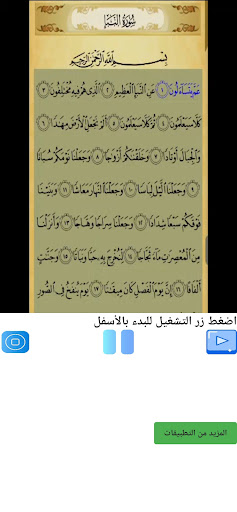 سُورَةُ النَّبَإِ
بِسْمِ اللَّهِ الرَّحْمَٰنِ الرَّحِيمِ
عَمَّ يَتَسَاءَلُونَ ١ عَنِ النَّبَإِ الْعَظِيمِ ٢ الَّذِي هُمْ فِيهِ مُخْتَلِفُونَ ٣
كَلَّا سَيَعْلَمُونَ ٤ ثُمَّ كَلَّا سَيَعْلَمُونَ ٥ أَلَمْ نَجْعَلِ الْأَرْضَ مِهَادًا ٦
وَالْجِبَالَ أَوْتَادًا ٧ وَخَلَقْنَاكُمْ أَزْوَاجًا ٨ وَجَعَلْنَا نَوْمَكُمْ سُبَاتًا
٩ وَجَعَلْنَا اللَّيْلَ لِبَاسًا ١٠ وَجَعَلْنَا النَّهَارَ مَعَاشًا ١١ وَبَنَيْنَا
فَوْقَكُمْ سَبْعًا شِدَادًا ١٢ وَجَعَلْنَا سِرَاجًا وَهَّاجًا ١٣ وَأَنزَلْنَا
مِنَ الْمُعْصِرَاتِ مَاءً ثَجَّاجًا ١٤ لِّنُخْرِجَ بِهِ حَبًّا وَنَبَاتًا ١٥ وَجَنَّاتٍ
أَلْفَافًا ١٦ إِنَّ يَوْمَ الْفَصْلِ كَانَ مِيقَاتًا ١٧ يَوْمَ يُنفَخُ فِي الصُّورِ
اضغط زر التشغيل للبدء بالأسفل
المزيد من التطبيقات